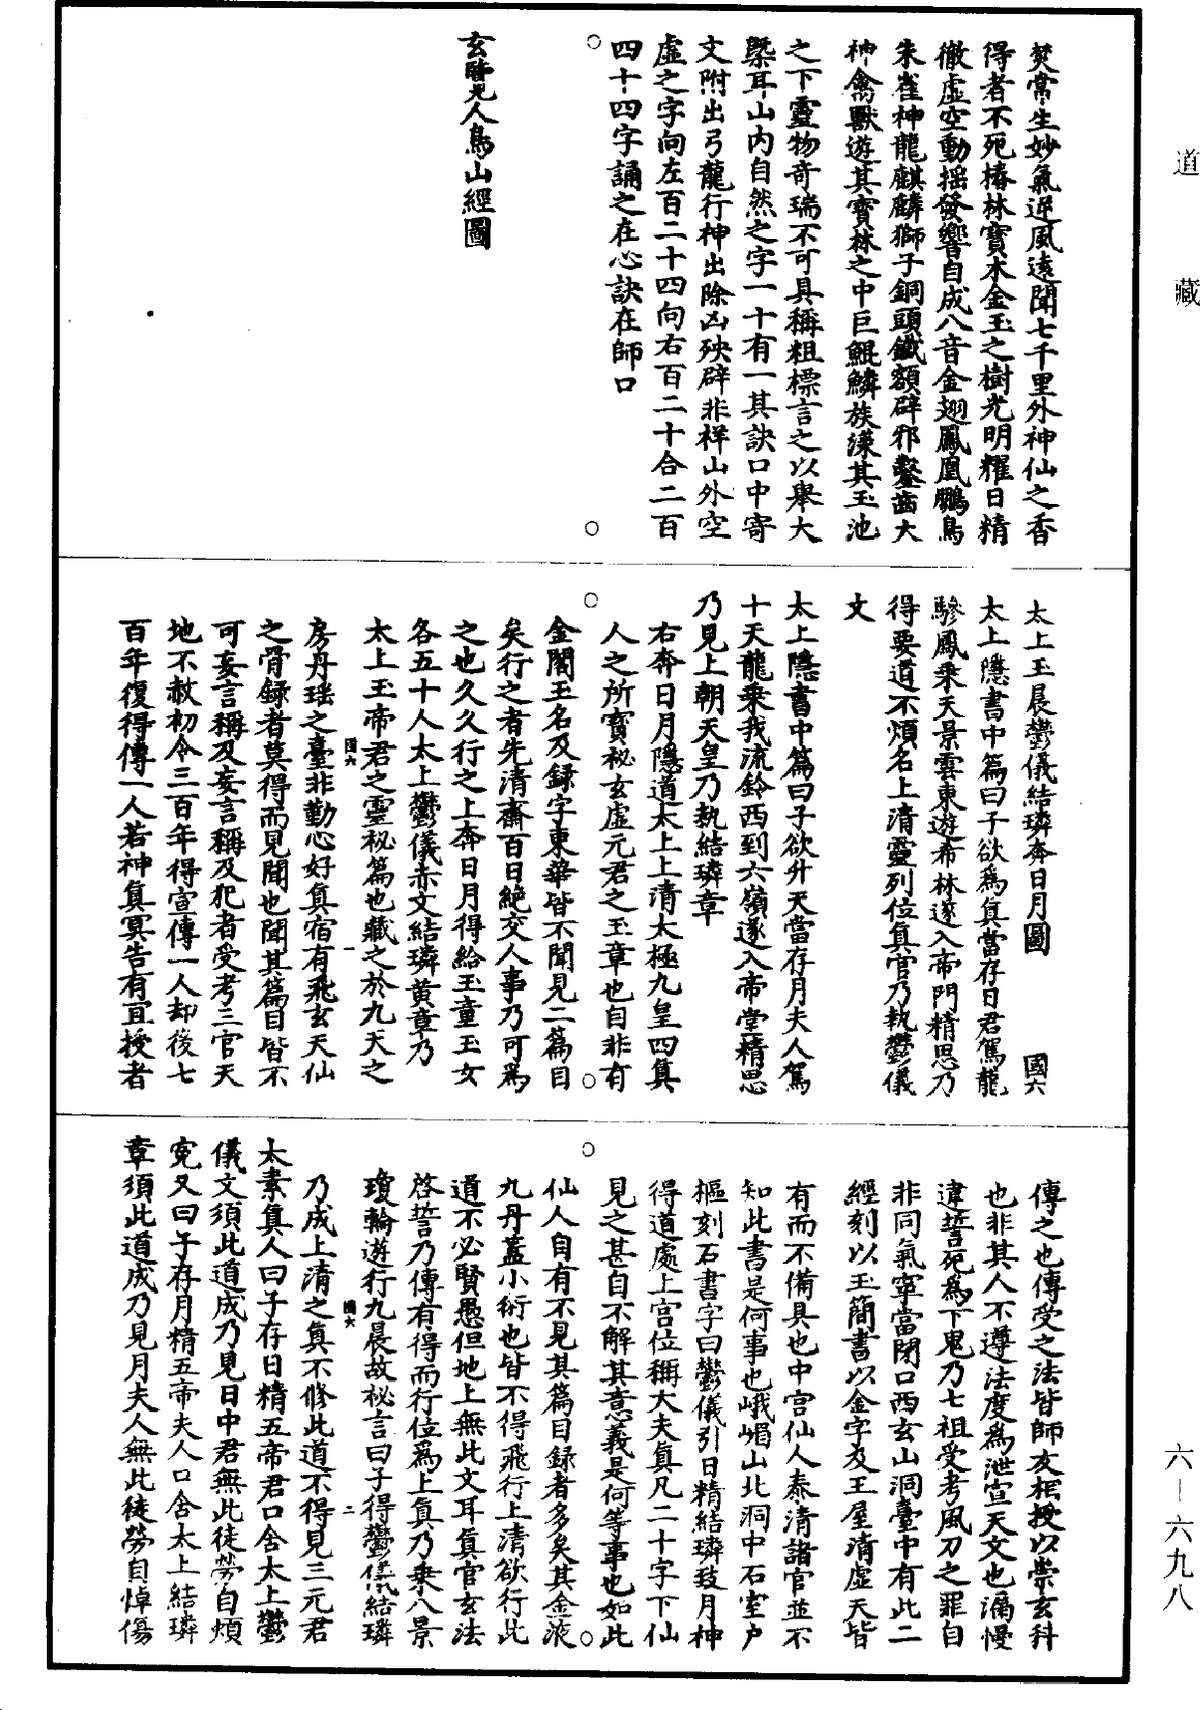 道藏
焚常生妙氣逆風遠聞七千里外神仙之香
得者不死椿林寶木金玉之樹光明耀日精
徹虛空動搖發響自成八音金翅鳳凰鵬鳥
朱雀神龍麒麟獅子銅頭鐵額辟邪鑿齒大
神禽獸遊其寶林之中巨鯤鱗族漾其玉池
之下靈物奇瑞不可具稱粗標言之以舉大
槩耳山內自然之字一十有一其訣口中寄
文附出弓龍行神出除凶殃辟非祥山外空
虛之字向左百二十四向右百二十合二百
四十四字誦之在心訣在師口
玄覽人鳥山經圖
太上玉晨鬱儀結璘奔日月圖 國六
太上隱書中篇曰子欲為真當存日君駕龍
驂鳳乘天景雲東遊希林遂入帝門精思乃
得要道不煩名上清靈列位真官乃執鬱儀
文
太上隱書中篇曰子欲升天當存月夫人駕
十天龍乘我流鈴西到六嶺遂入帝堂精思
乃見上朝天皇乃執結璘章
右奔日月隱道太上上清太極九皇四真
人之所寶秘玄虛元君之玉章也自非有
金閣玉名及録字東華皆不聞見二篇目
矣行之者先清齋百日絶交人事乃可為
之也久久行之上奔日月得給玉童玉女
各五十人太上鬱儀赤文結璘黃章乃
太上玉帝君之靈秘篇也藏之於九天之
國六 一
房丹瑤之臺非勤心好真宿有飛玄天仙
之骨録者莫得而見聞也聞其篇目皆不
可妄言稱及妄言稱及犯者受考三官天
地不赦初令三百年得宣傳一人却後七
百年復得傳一人若神真冥告有宜授者
傳之也傳受之法皆師友相授以崇玄科
也非其人不遵法度為泄宣天文也漏慢
違誓死為下鬼乃七祖受考風刀之罪自
非同氣寧當閉口西玄山洞臺中有此二
經刻以玉簡書以金字及王屋清虛天皆
有而不備具也中宮仙人泰清諸官並不
知此書是何事也峨嵋山北洞中石室户
樞刻石書字曰鬱儀引日精結璘致月神
得道處上宮位稱大夫真凡二十字下仙
見之甚自不解其意義是何等事也如此
仙人自有不見其篇目録者多矣其金液
九丹蓋小術也皆不得飛行上清欲行此
道不必賢愚但地上無此文耳真官玄法
啓誓乃傳有得而行位為上真乃乘八景
瓊輪遊行九晨故祕言曰子得鬱儀結璘
國六 二
乃成上清之真不修此道不得見三元君
太素真人曰子存日精五帝君口含太上鬱
儀文須此道成乃見日中君無此徒勞自煩
寃又曰子存月精五帝夫人口含太上結璘
章須此道成乃見月夫人無此徒勞自悼傷
六－六九八